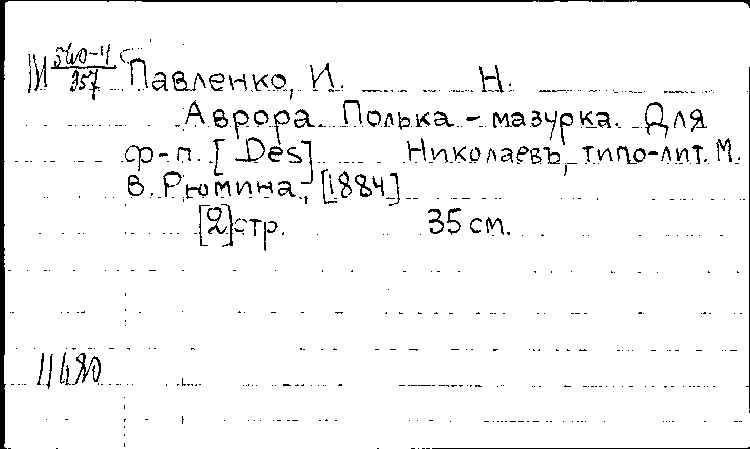 М 540-4/357 Павленко, И. Н.
Аврора. Полька-мазурка. Для
ф-п. [Des] Николаевъ, типо-лит. М.
В. Рюмина, [1884]
[2] стр. 35 см.